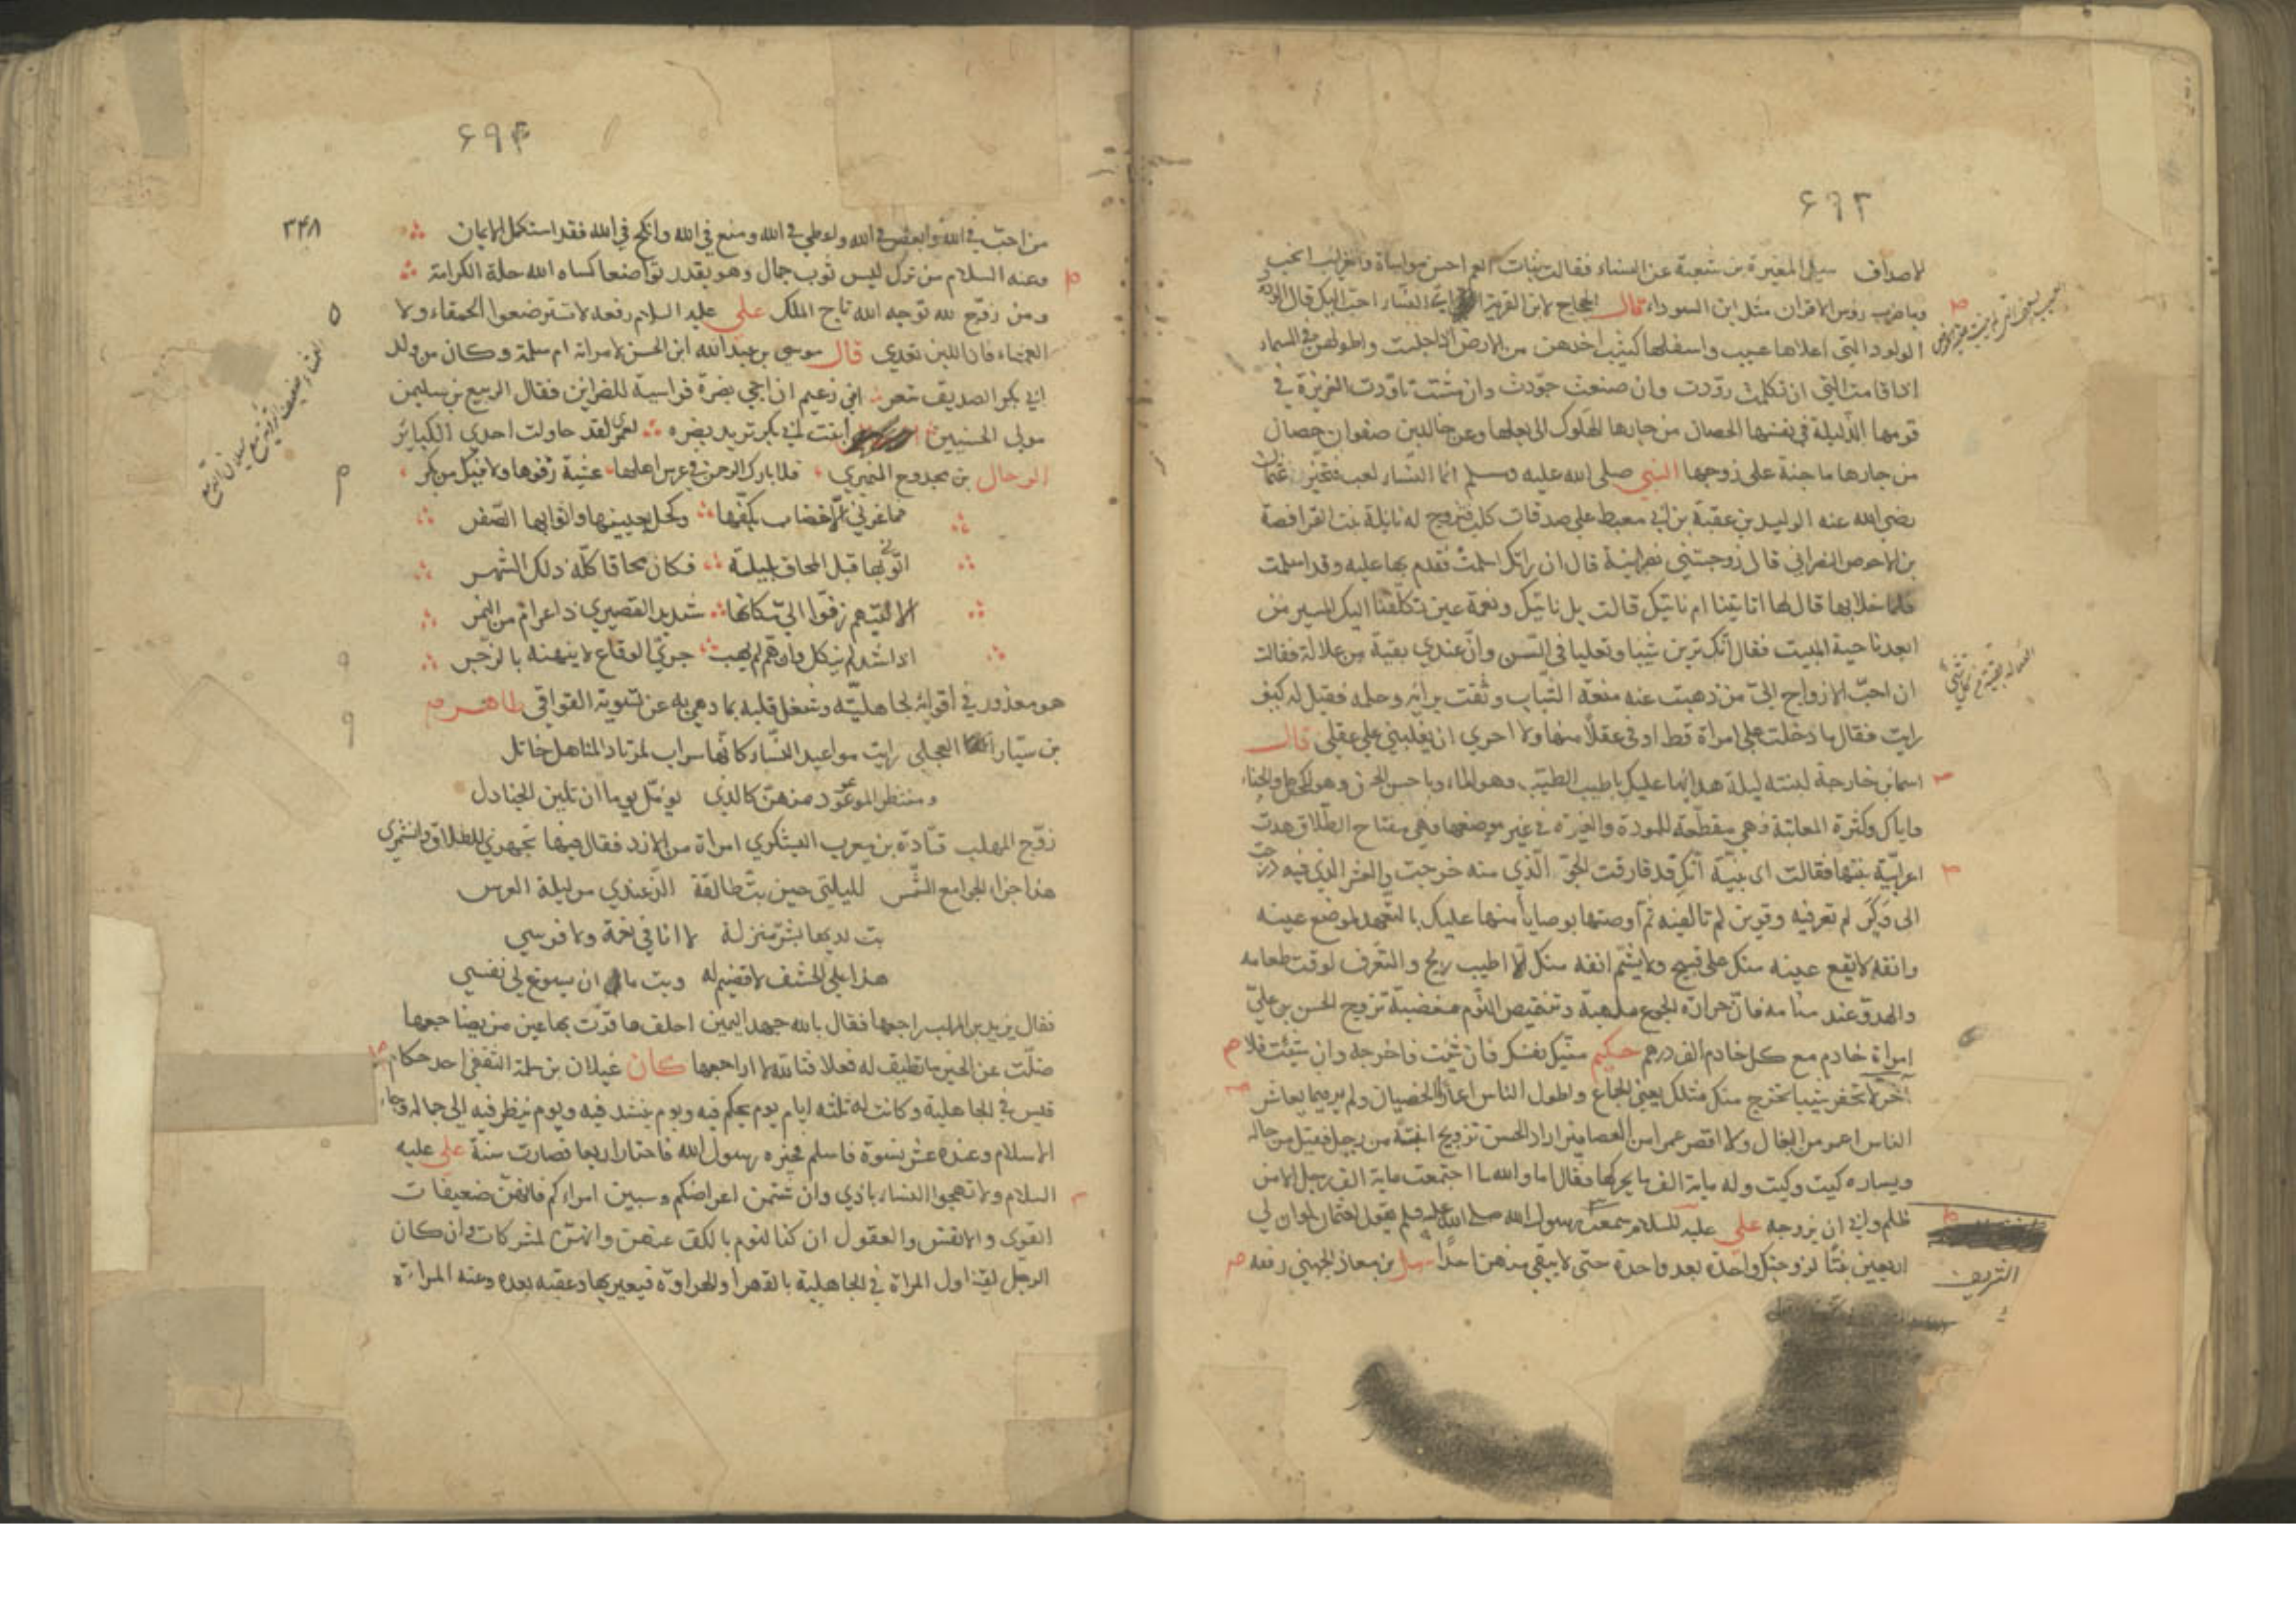 ۶۹۳
لاصداق سئل المغيرة بن شعبة عن النساء فقال بنات العم احسن مواساة والغرايب انجب
وما ضرب رؤس الاقران مثل ابن السوداء قال الحجاج لابن القرية اي النساء احب اليك قال الودود
الولود التي اعلاها عسيب واسفلها كثيب اخذهن من الارض اذا جلست واطولهن في السماء
اذا قامت التي ان تكلمت روّدت وان صنعت جوّدت وان مشت تاوّدت العزيزة في
قومها الذليلة في نفسها الحصان من جارها الهلوك الى بعلها وعن خالد بن صفوان حصان
من جارها ماجنة على زوجها النبي صلى الله عليه وسلم انما النساء لعب فتخيروا عثمان
رضي الله عنه الوليد بن عقبة بن ابي معيط على صدقات كلب فتزوج له نايلة بنت الفرافصة
بن الاحوص النصراني قال زوجتني نصرانية قال ان راتك اسلمت فقدم بها عليه وقد اسلمت
فلما خلا بها قال لها اتاتينا ام ناتيك قالت بل ناتيك ونعمة عين تكلفنا اليك المسير من
ابعد ناحية البيت فقال انك ترين شيبا وتعليا في السن وان عندي بقية من علالة فقالت
ان احب الازواج اليّ من ذهبت عنه منعة الشباب وثقت برايه وحلمه فقيل له كيف
رايت فقال ما دخلت على امراة قط اوفى عقلا منها ولا احرى ان يغلبني على عقلي قال
اسما بن خارجة لبنته ليلة هدائها عليك باطيب الطيب وهو الماء وباحسن الحسن وهو الكحل والحناء
واياك وكثرة المعاتبة فهي مقطعة للمودة والغيرة في غير موضعها فهي مفتاح الطلاق هدت
اعرابية بنتها فقالت اى بنية انك قد فارقت الجو الذي منه خرجت والعش الذي فيه درجت
الى وكر لم تعرفيه وقرين لم تالفيه ثم اوصتها بوصايا منها عليك بالتعهد لموضع عينه
وانفه لا يقع عينه منك على قبيح ولا يشم انفه منك الا اطيب ريح والتعرف لوقت طعامه
والهدوّ عند منامه فان حرارة الجوع ملهبة وتنغيص النوم مغضبة تزوج الحسن بن علي
امراة خادم مع كل خادم الف درهم حكيم منيك نفسك فان شئت فاخرجه وان شئت فلا
آخر لا تحقر شيبا تخرج منك مثلك يعني الجماع واطول الناس اعمارا الخصيان ولم ير فيما يعاش
الناس اعمر من البغال ولا اقصر عمرا من العصافير اراد الحسن تزويج ابنته من رجل فقيل من حاله
ويساره كيت وكيت وله ماية الف ما يحركها فقال اما والله ما اجتمعت ماية الف رجل الا من
ظلم وابى ان يزوجه علي عليه السلام سمعت رسول الله صلى الله عليه وسلم يقول لعثمان لو ان لي
اربعين بنتا لزوجتك واحدة بعد واحدة حتى لا يبقى منهن احدا سهل بن معاذ الجهني رفعه
۶۹۴
۳۴۸
من احبّ في الله وابغض في الله واعطي في الله ومنع في الله وانكح في الله فقد استكمل الايمان
وعنه السلام من ترك لبس ثوب جمال وهو يقدر تواضعا كساه الله حلة الكرامة
ومن زوّج لله توجه الله تاج الملك علي عليه السلام رفعه لا تسترضعوا الحمقاء ولا
العمشاء فان اللبن تعدي قال موسى بن عبد الله ابن الحسن لامراته ام سلمة وكان من ولد
ابي بكر الصديق شعر اني زعيم ان اجي بضرة فراسية للضراين فقال الربيع بن سليمن
مولى الحسنيين ابنت ابي بكر تريد بضره لعمري لقد حاولت احدي الكبائر
الرحال بن مجدوح النميري فلا بارك الرحمن في عرس اهلها عشية زفوها ولا فيك من بكر
فما غرني الا خضاب بكفّها وكحل بعينيها واثوابها الصفر
اتوني بها قبل المحاق بليلة فكان محاقا كلّه ذلك الشهر
هو معذور في اقوائه لجاهليته وشغل قلبه بما دهي به عن تسوية القوافي طاهر
بن سيّار العجلي رايت مواعيد النساء كانّها سراب لمرتاد المناهل خاتل
ومنتظر الموعود منهنّ كالذي يؤمّل يوما ان تلين الجنادل
زوّج المهلب قتادة بن مغرب اليشكري امراة من الازد فقال فيها تجهزي للطلاق وانشمري
هذا جزاء الجوامع الشمس لليلتي حين بتّ طالقة الذّ عندي من ليلة العرس
بت لديها بشرّ منزلة لا انا في نعمة ولا فرسي
هذا على الخسف لا قضيم له وبت ما ان يسوغ لي نفسي
فقال يزيد بن المهلب راجعها فقال بالله جهد اليمين احلف ما قرّت بها عين من يضاجعها
ضلّت عن الخير ما تطيف له فعلا فتالله لا اراجعها كان غيلان بن سلمة الثقفي احد حكام
قيس في الجاهلية وكانت له ثلثه ايام يوم يحكم فيه ويوم ينشد فيه ويوم ينظر فيه الى جماله وجاء
الاسلام وعنده عشر نسوة فاسلم فخيره رسول الله فاختار اربعا فصارت سنة علي عليه
السلام ولا تهيجوا النساء باذي وان شتمن اعراضكم وسببن امراءكم فانهنّ ضعيفات
القوي والانفس والعقول ان كنا لنؤمر بالكف عنهن وانهنّ لمشركات وان كان
الرجل ليتناول المراة في الجاهلية بالقهر او الهراوة فيعير بها وعقبه بعده وعنه المراة